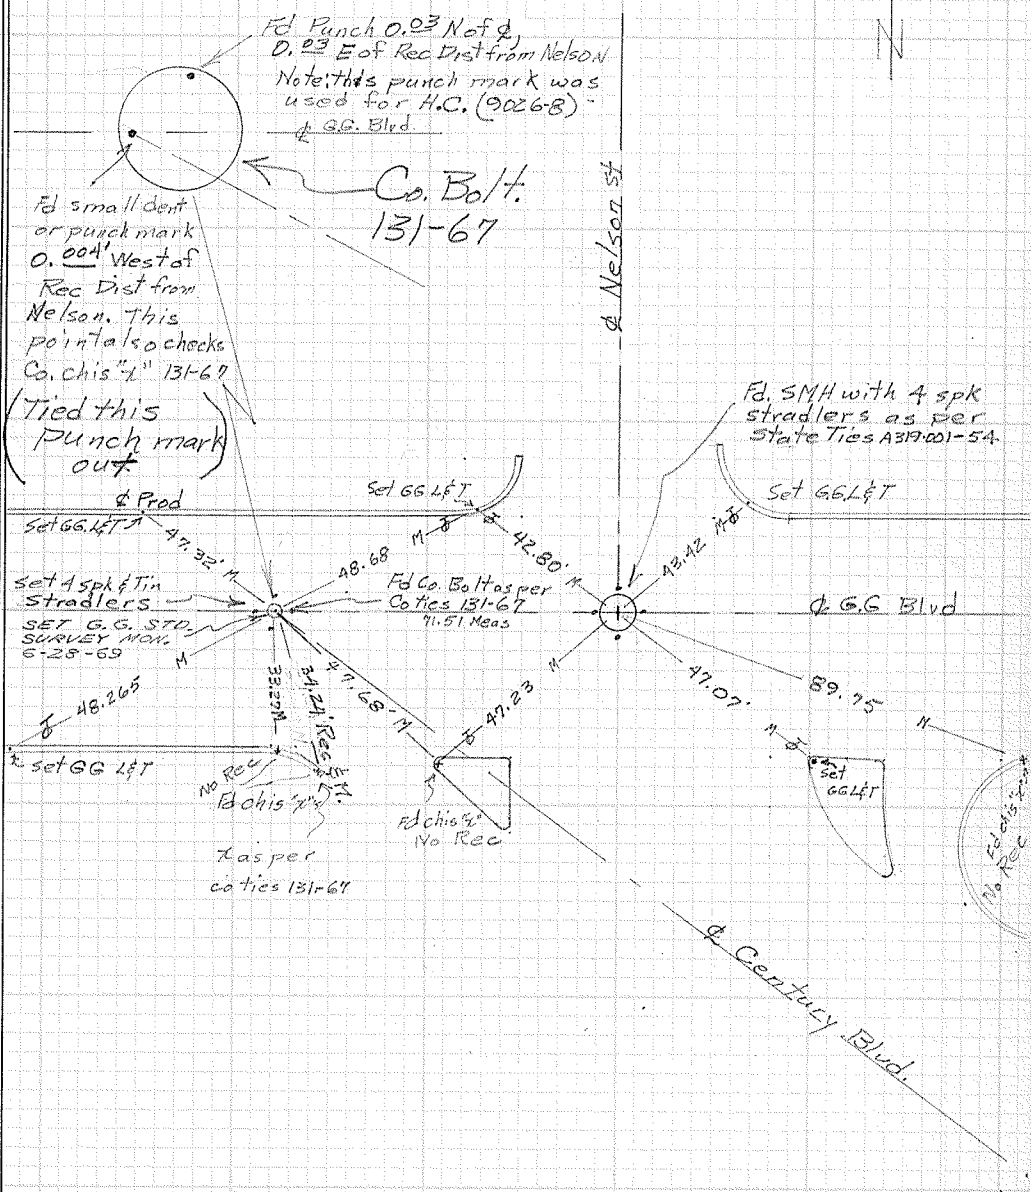 Fd Punch 0.03 N of ℄,
0.03 E of Rec Dist from Nelson
Note: this punch mark was
used for H.C. (9026-8)
℄ G.G. Blvd.
N
Co. Bolt.
131-67
℄ Nelson St
Fd small dent
or punch mark
0.004' West of
Rec Dist from
Nelson. This
point also checks
Co. chis "x" 131-67
(Tied this
Punch mark
out)
Fd. SMH with 4 spk
stradlers as per
State Ties A319.001-54
℄ Prod
Set GG. L&T
Set GG L&T
Set G.G. L&T
47.32' M
48.68 M
42.80' M
43.42 M
set 4 spk & Tin
Stradlers
SET G.G. STD
SURVEY MON.
6-28-69
Fd Co. Bolt as per
Co ties 131-67
71.51 Meas
℄ G.G Blvd
48.265 M
33.27 M
34.24' Rec & M.
47.68' M
47.23 M
47.07' M
89.75 M
x set GG L&T
No Rec
Fd chis "x"s
x as per
co ties 131-67
Fd chis "x"
No Rec
Set
GG L&T
Fd chis "x"
No Rec
℄ Century Blvd.